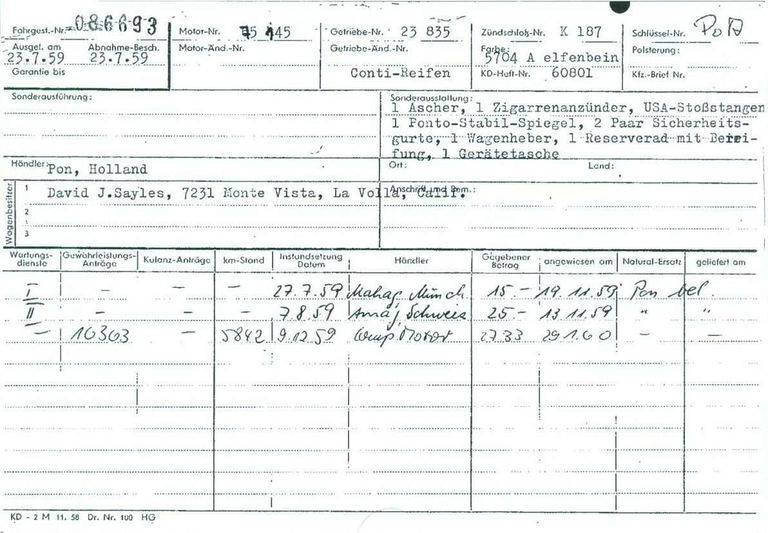 Fahrgest.-Nr. 086693 Motor-Nr. 75 145 Getriebe-Nr. 23 835 Zündschloß-Nr. K 187 Schlüssel-Nr.
Ausgel. am Abnahme-Besch. Motor-Änd.-Nr. Getriebe-Änd.-Nr. Farbe: 5704 A elfenbein Polsterung:
23.7.59 23.7.59
Garantie bis Conti-Reifen KD-Heft-Nr. 60801 Kfz.-Brief Nr.
Sonderausführung: Sonderausstattung:
1 Ascher, 1 Zigarrenanzünder, USA-Stoßstangen
1 Ponto-Stabil-Spiegel, 2 Paar Sicherheits-
gurte, 1 Wagenheber, 1 Reserverad mit Berei-
fung, 1 Gerätetasche
Händler: Pon, Holland Ort: Land:
Wagenbesitzer
1 David J.Sayles, 7231 Monte Vista, La Volla, Calif. Anschrift und Bem.:
2
3
Wartungs-dienste Gewährleistungs-Anträge Kulanz-Anträge km-Stand Instandsetzung Datum Händler Gegebener Betrag angewiesen am Natural-Ersatz geliefert am
I – – – 27.7.59 Mahag, Münch. 15.– 19.11.59 Pon bel.
II – – – 7.8.59 Amag, Schweiz 25.– 13.11.59 " "
– 16363 – 5842 9.12.59 Comp. Motor 27.33 29.1.60 – –
KD - 2 M 11. 58 Dr. Nr. 100 HG